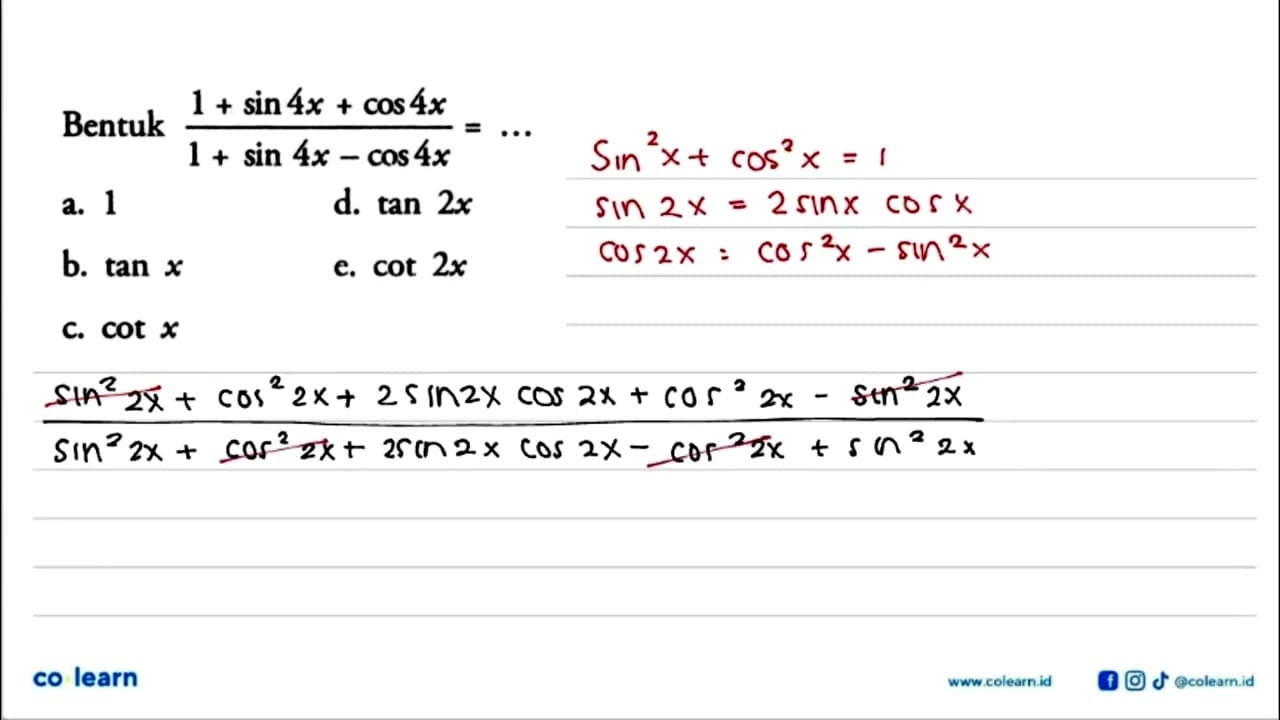 Bentuk (1 + sin 4x + cos 4x)/(1 + sin 4x – cos 4x) = ...
a. 1
b. tan x
c. cot x
d. tan 2x
e. cot 2x
Sin²x + cos²x = 1
sin 2x = 2 sin x cos x
cos 2x = cos²x – sin²x
sin² 2x + cos² 2x + 2 sin 2x cos 2x + cos² 2x – sin² 2x
sin² 2x + cos² 2x + 2 sin 2x cos 2x – cos² 2x + sin² 2x
co learn
www.colearn.id
@colearn.id